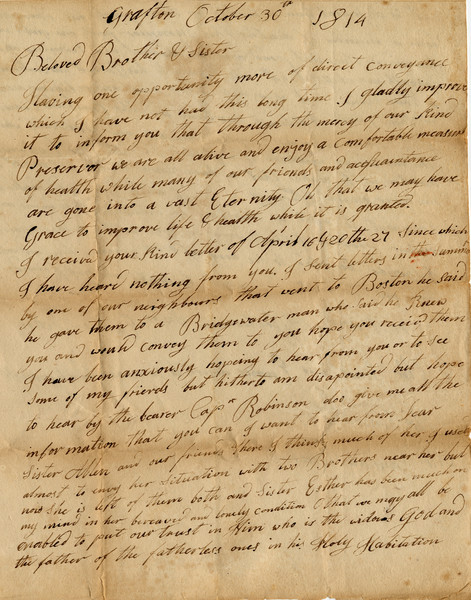 Grafton October 30th 1814
Beloved Brother & Sister
Having one opportunity more of direct conveyance
which I have not had this long time I gladly improve
it to inform you that through the mercy of our Kind
Preserver we are all alive and enjoy a Comfortable measure
of health while many of our friends and acquaintance
are gone into a vast Eternity Oh that we may have
Grace to improve life & health while it is granted
I receivd your Kind letter of April 16 & 20 the 27 Since which
I have heard nothing from you. I sent letters in the Summer
by one of our neighbours that went to Boston he said
he gave them to a Bridgewater man who said he Knew
you and would convey them to you hope you receivd them
I have been anxiously hopeing to hear from you or to See
some of my friends but hitherto am disapointed but hope
to hear by the bearer Capn Robinson doo give me all the
information that you can I want to hear from Dear
Sister Allen and our friends there I think much of her I used
almost to envy her Situation with two Brothers near her but
now She is left of them both and Sister Esther has been much on
my mind in her bereaved and lonely condition O that we may all be
enabled to put our trust in Him who is the widows God and
the father of the fatherless ones in his Holy Habitation